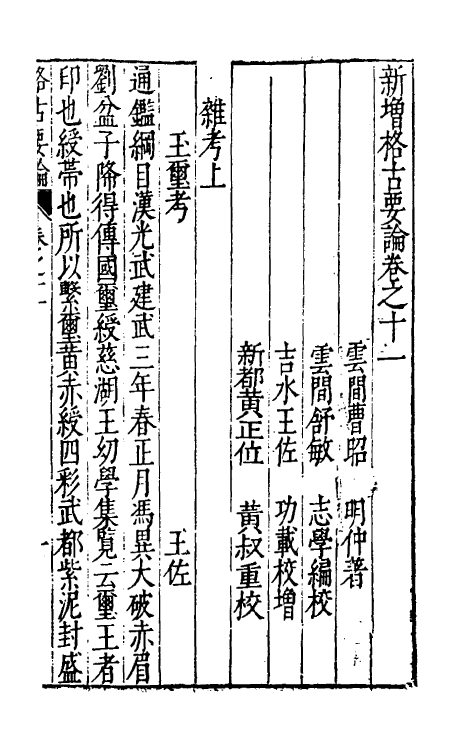 新增格古要論卷之十一
雲間曹昭 明仲著
雲間舒敏 志學編校
吉水王佐 功載校增
新都黃正位 黃叔重校
雜考上
玉璽考 王佐
通鑑綱目漢光武建武三年春正月馮異大破赤眉
劉盆子降得傳國璽綬慈湖王幼學集覽云璽王者
印也綬帶也所以繫璽黃赤綬四彩武都紫泥封盛
格古要論 卷之十一 一